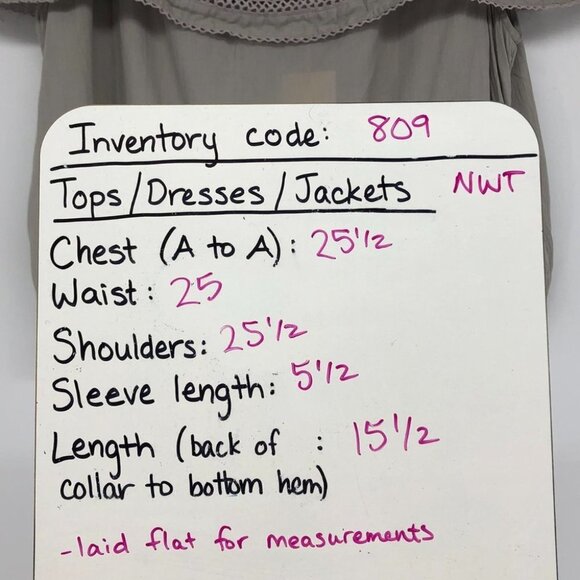 Inventory code: 809
Tops/Dresses/Jackets NWT
Chest (A to A): 25 1/2
Waist: 25
Shoulders: 25 1/2
Sleeve length: 5 1/2
Length (back of : 15 1/2
collar to bottom hem)
-laid flat for measurements